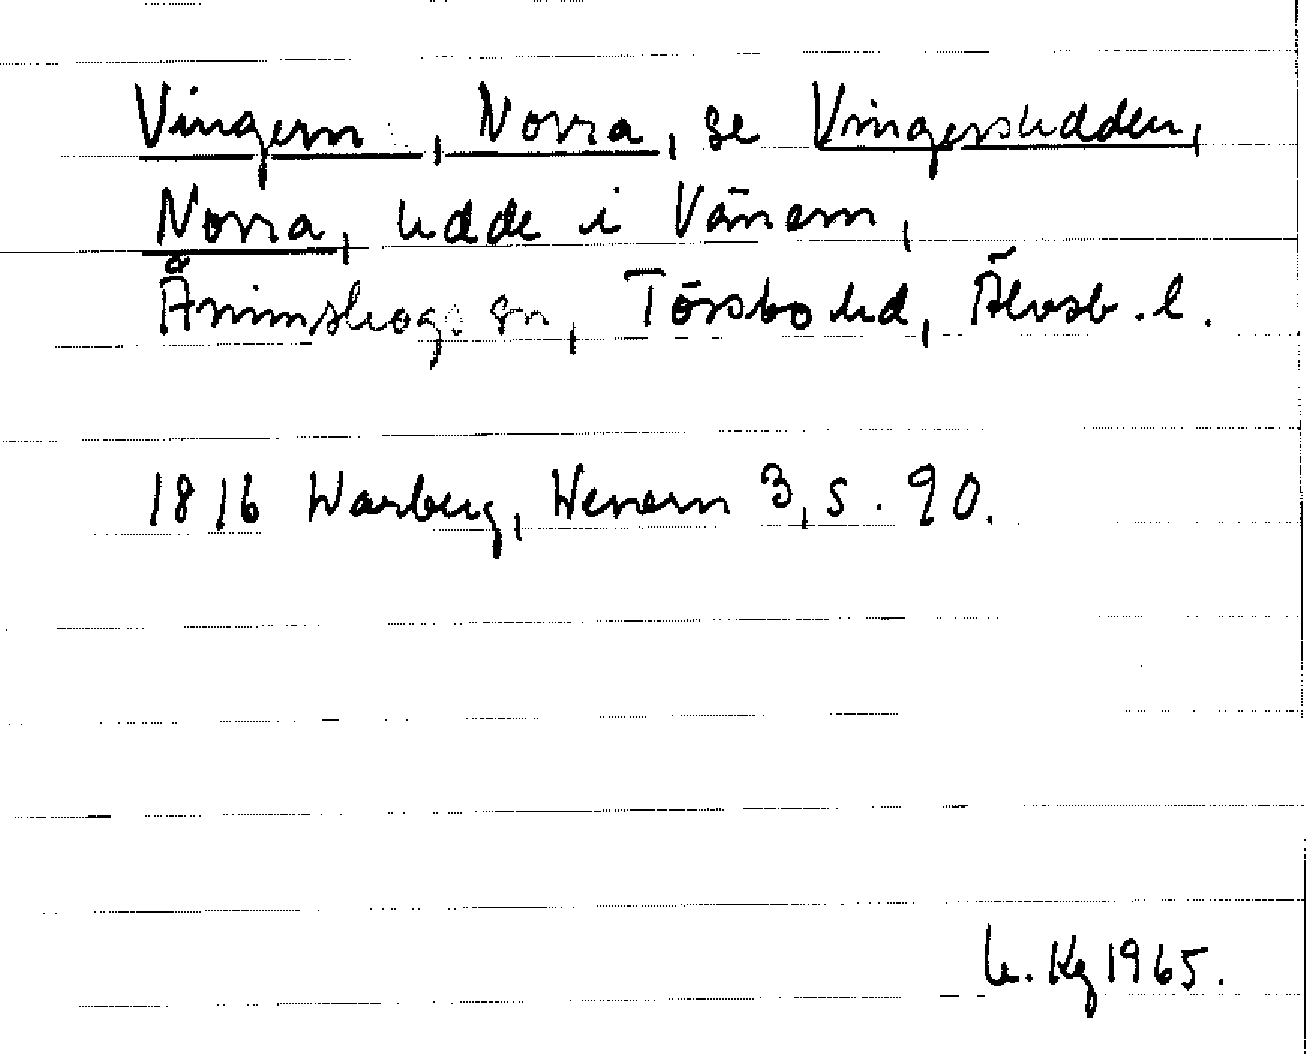 Vingern, Norra, se Vingersudden,
Norra, udde i Vänern,
Ånimskogs sn, Tössbo hd, Älvsb. l.
1816 Warberg, Wenern 3, s. 90.
U. Kg 1965.